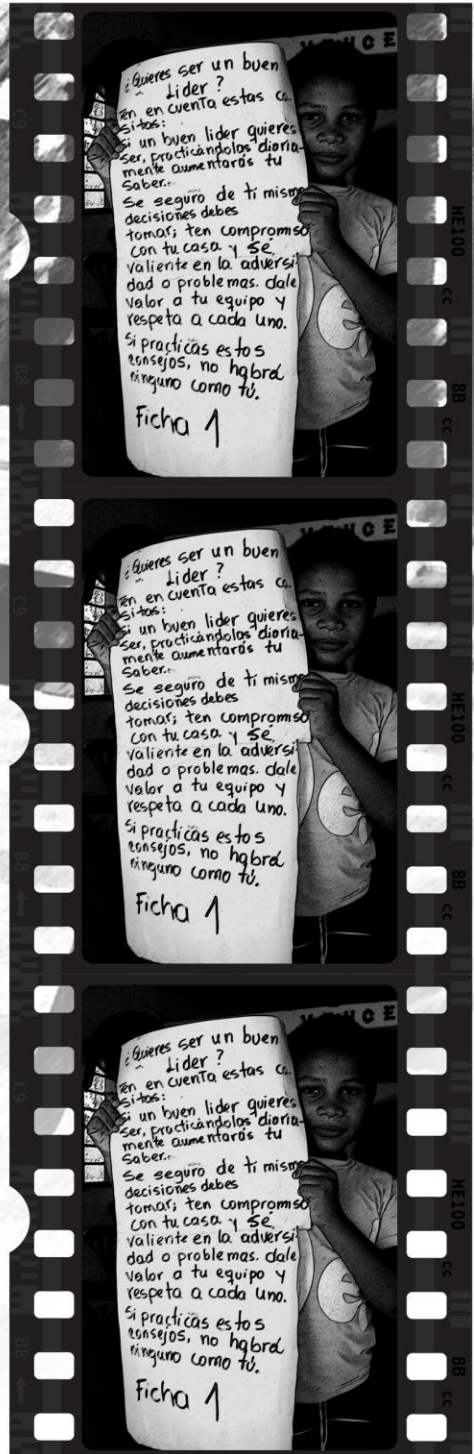 U C E
¿Quieres ser un buen
Lider?
en en cuenta estas co
sitas:
i un buen lider quieres
ser, practicándolas diaria-
mente aumentarás tu
Saber..
Se seguro de ti mismo
decisiones debes
tomar; ten compromiso
con tu casa y Sé
valiente en la adversi
dad o problemas. dale
valor a tu equipo y
respeta a cada uno.
Si practicas estos
consejos, no habrá
ninguno como tú.
Ficha 1
U C E
¿Quieres ser un buen
Lider?
en en cuenta estas co
sitas:
i un buen lider quieres
ser, practicándolas diaria-
mente aumentarás tu
Saber..
Se seguro de ti mismo
decisiones debes
tomar; ten compromiso
con tu casa y Sé
valiente en la adversi
dad o problemas. dale
valor a tu equipo y
respeta a cada uno.
Si practicas estos
consejos, no habrá
ninguno como tú.
Ficha 1
U C E
¿Quieres ser un buen
Lider?
en en cuenta estas co
sitas:
i un buen lider quieres
ser, practicándolas diaria-
mente aumentarás tu
Saber..
Se seguro de ti mismo
decisiones debes
tomar; ten compromiso
con tu casa y Sé
valiente en la adversi
dad o problemas. dale
valor a tu equipo y
respeta a cada uno.
Si practicas estos
consejos, no habrá
ninguno como tú.
Ficha 1
ME100
cc
8B
cc
ME100
cc
8B
cc
ME100
cc
8B
cc
C9
88
C9
88
C9
88